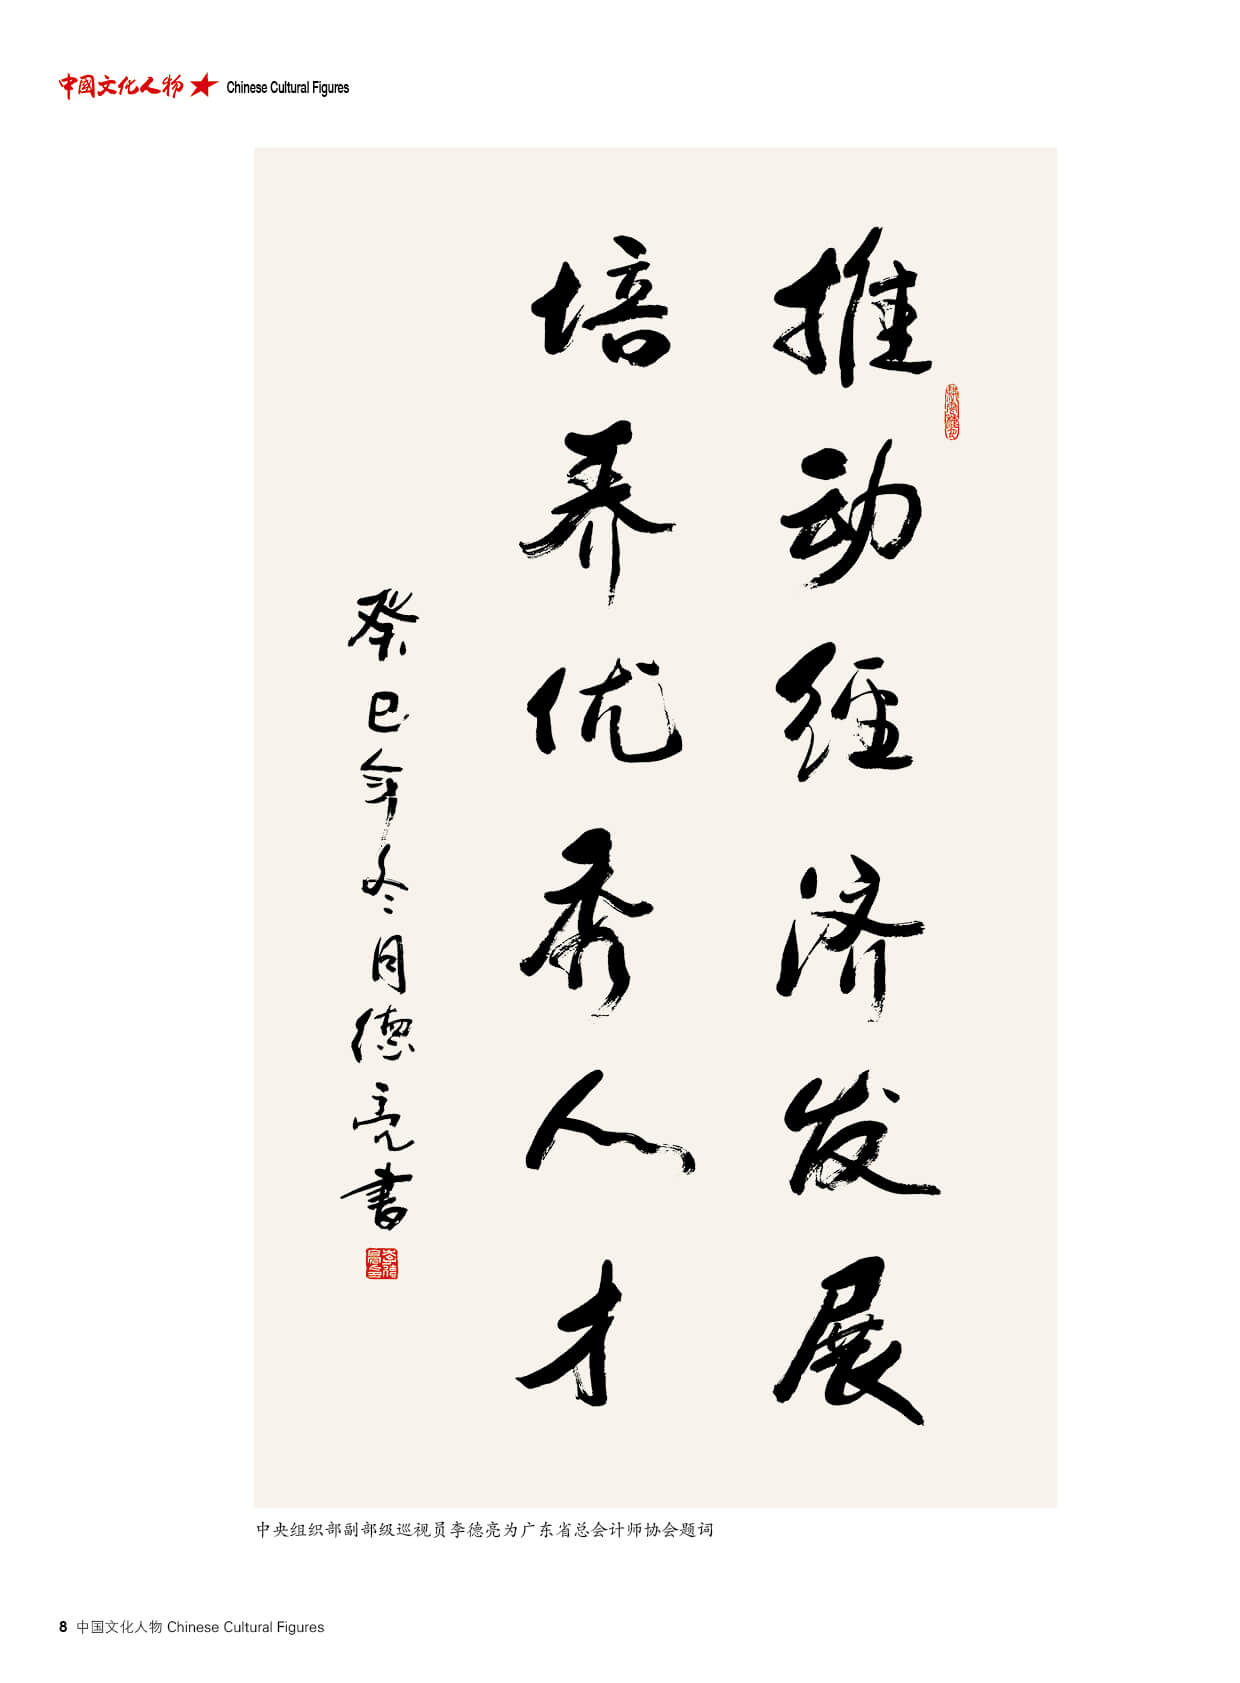 中國文化人物 Chinese Cultural Figures
推动经济发展
培养优秀人才
癸巳年冬月德亮書
中央组织部副部级巡视员李德亮为广东省总会计师协会题词
8 中国文化人物 Chinese Cultural Figures